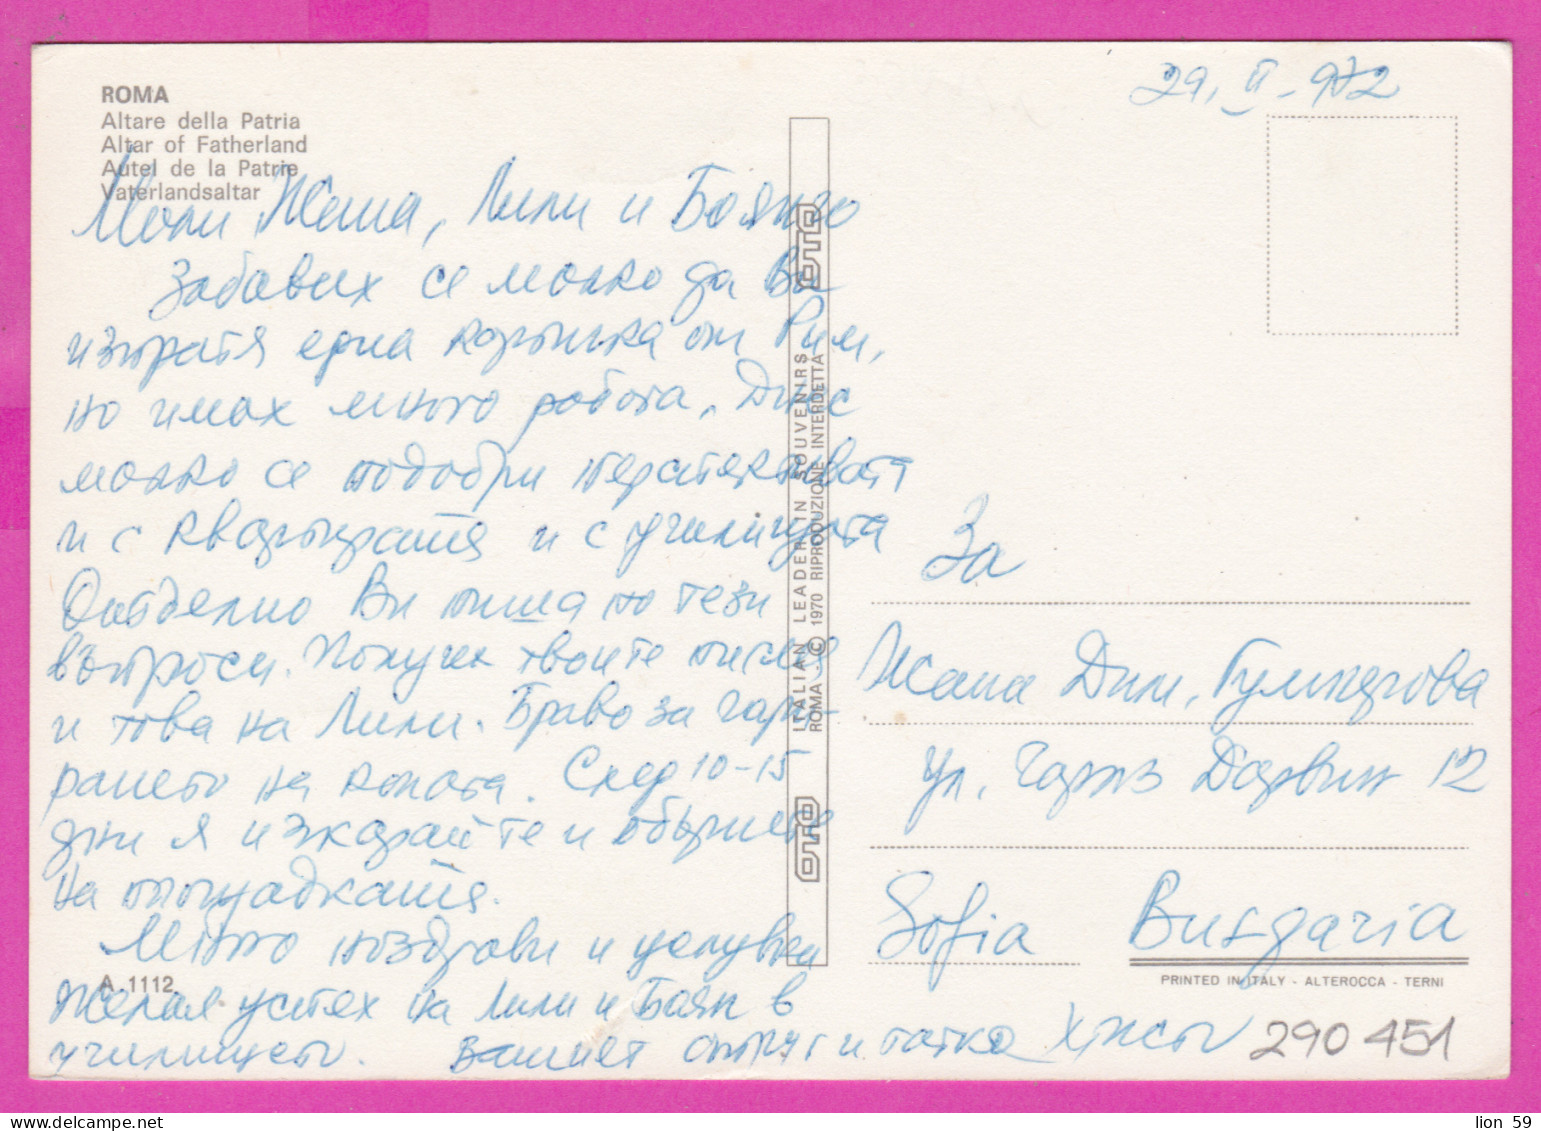 29. II - 972
ROMA
Altare della Patria
Altar of Fatherland
Autel de la Patrie
Vaterlandsaltar
Мили Жана, Лили и Боянчо
Забавих се малко да Ви
изпратя една картичка от Рим,
но имах много работа. Днес
малко се подобри перспективата
и с квартирата и с училището
Отделно Ви пиша по тези
въпроси. Получих твоите писма
и това на Лили. Браво за
на колата. След 10-15
дни я изкарайте и обърнете
на площадката.
Много поздрави и целувки
Желая успех на Лили и Боян в
училището. Вашият съпруг и татко Христо
ITALIAN LEADER IN SOUVENIRS
ROMA © 1970 RIPRODUZIONE INTERDETTA
OTO
OTO
За
Жана Дим.
ул. Чарлз Дарвин 12
Sofia Bulgaria
A. 1112
PRINTED IN ITALY - ALTEROCCA - TERNI
290451
delcampe.net
lion 59